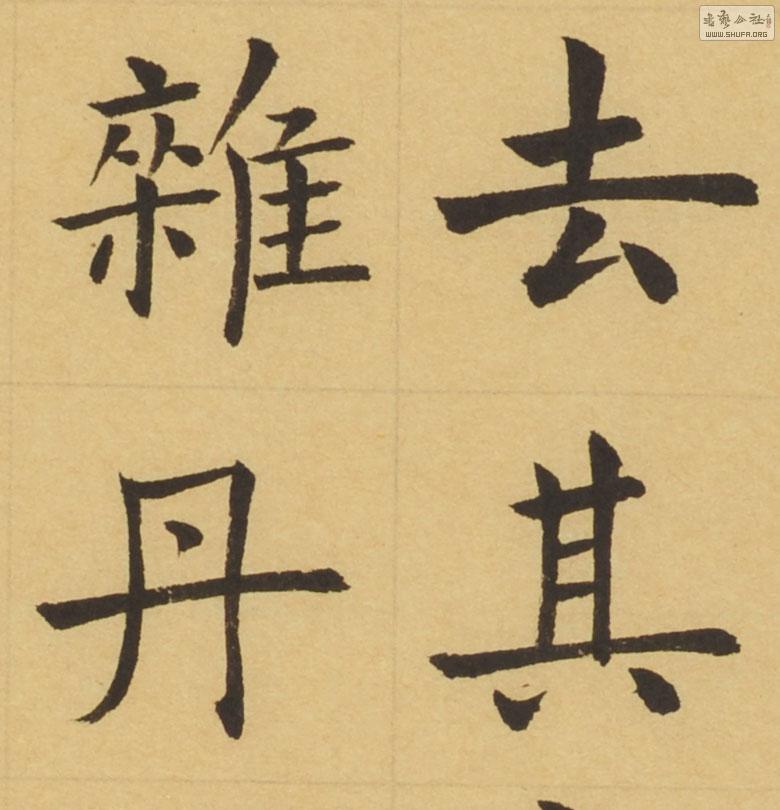 去其
雜丹
書藝公社
WWW.SHUFA.ORG